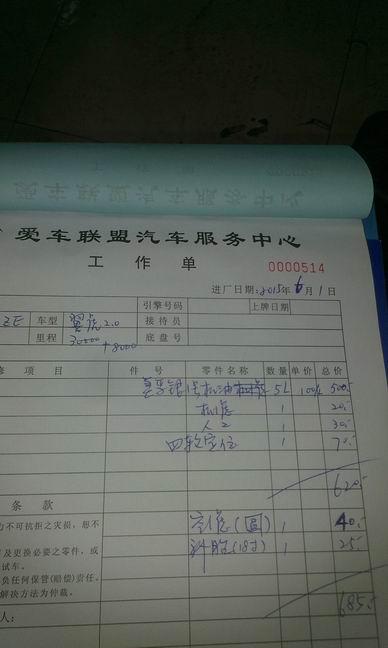 爱车联盟汽车服务中心
工作单
0000514
进厂日期:2015年6月1日
引擎号码 上牌日期
ZE 车型 翼虎2.0 接待员
里程 30000+8000 底盘号
修项目 件号 零件名称 数量 单价 总价
机油 5L 100/L 500.-
机滤 1 20.-
人工 1 30.-
四轮定位 1 70.-
620.-
条款
力不可抗拒之灾损,恕不
空滤(圆) 1 40.-
及更换必要之零件,或
补胎(18寸) 1 25.-
试车。
负任何保管(赔偿)责任。
解决方法为仲裁。
685.-
人: